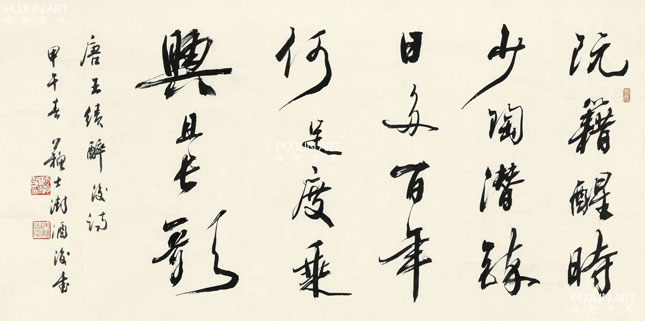 阮籍醒時
少陶潛醉
日多百年
何足度乘
興且長歌
唐王績醉後詩
甲午春 蘇士澍酒後書
PUJUN ART
PUJUN ART
PUJUN ART